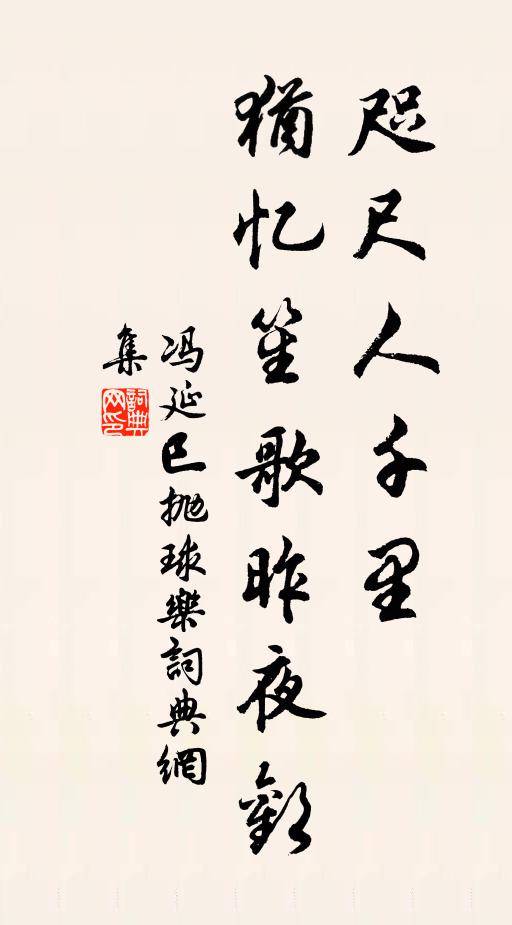 咫尺人千里
猶忆笙歌昨夜歡
冯延巳抛球樂詞典網
集
詞典网印